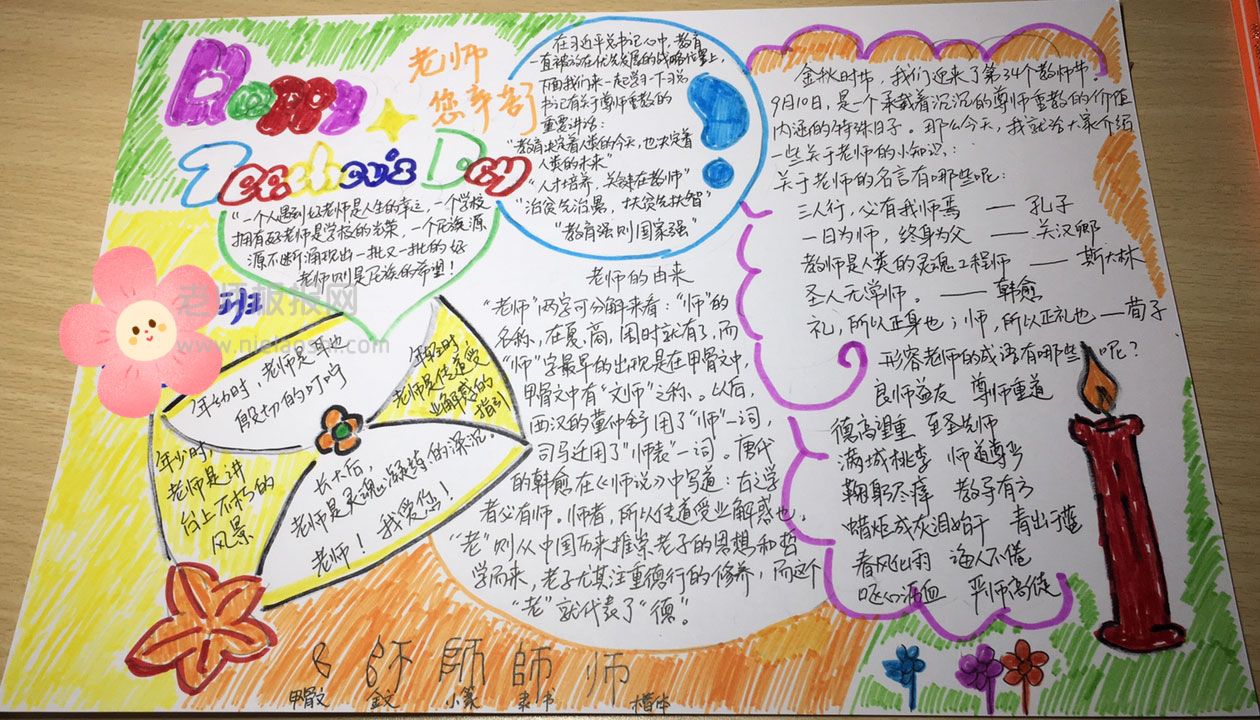 Happy
Teecher's Day
老师
您辛苦了
在习近平总书记心中，教育
一直被放在优先发展的战略位置上，
下面我们来一起学习一下习总
书记有关于尊师重教的
重要讲话：
“教育决定着人类的今天，也决定着
人类的未来”
“人才培养，关键在教师”
“治贫先治愚，扶贫先扶智”
“教育强则国家强”
“一个人遇到好老师是人生的幸运，一个学校
拥有好老师是学校的光荣，一个民族源
源不断涌现出一批又一批的好
老师则是民族的希望！
班
老师板报网
年幼时，老师是
殷切的叮咛
年轻时，
老师是传道受
业解惑的
指引
年少时，
老师是讲
台上不朽的
风景
长大后，
老师是灵魂凝结的深沉。
老师！我爱您！
老师的由来
“老师”两字可分解来看：“师”的
名称，在夏、商、周时就有了，而
“师”字最早的出现是在甲骨文中，
甲骨文中有“文师”之称。以后，
西汉的董仲舒用了“师”一词，
司马迁用了“师表”一词。唐代
的韩愈在《师说》中写道：古之学
者必有师。师者，所以传道受业解惑也，
“老”则从中国历来推崇老子的思想和哲
学而来，老子尤其注重德行的修养，而这个
“老”就代表了“德”。
师 師 師 师
甲骨文 金文 小篆 隶书 楷体
金秋时节，我们迎来了第34个教师节，
9月10日，是一个承载着沉沉的尊师重教的价值
内涵的特殊日子。那么今天，我就给大家介绍
一些关于老师的小知识：
关于老师的名言有哪些呢：
三人行，必有我师焉 —— 孔子
一日为师，终身为父 —— 关汉卿
教师是人类的灵魂工程师 —— 斯大林
圣人无常师。—— 韩愈
礼，所以正身也；师，所以正礼也 — 荀子
形容老师的成语有哪些呢？
良师益友 尊师重道
德高望重 至圣先师
满城桃李 师道尊严
鞠躬尽瘁 教导有方
蜡炬成灰泪始干 青出于蓝
春风化雨 诲人不倦
呕心沥血 严师高徒